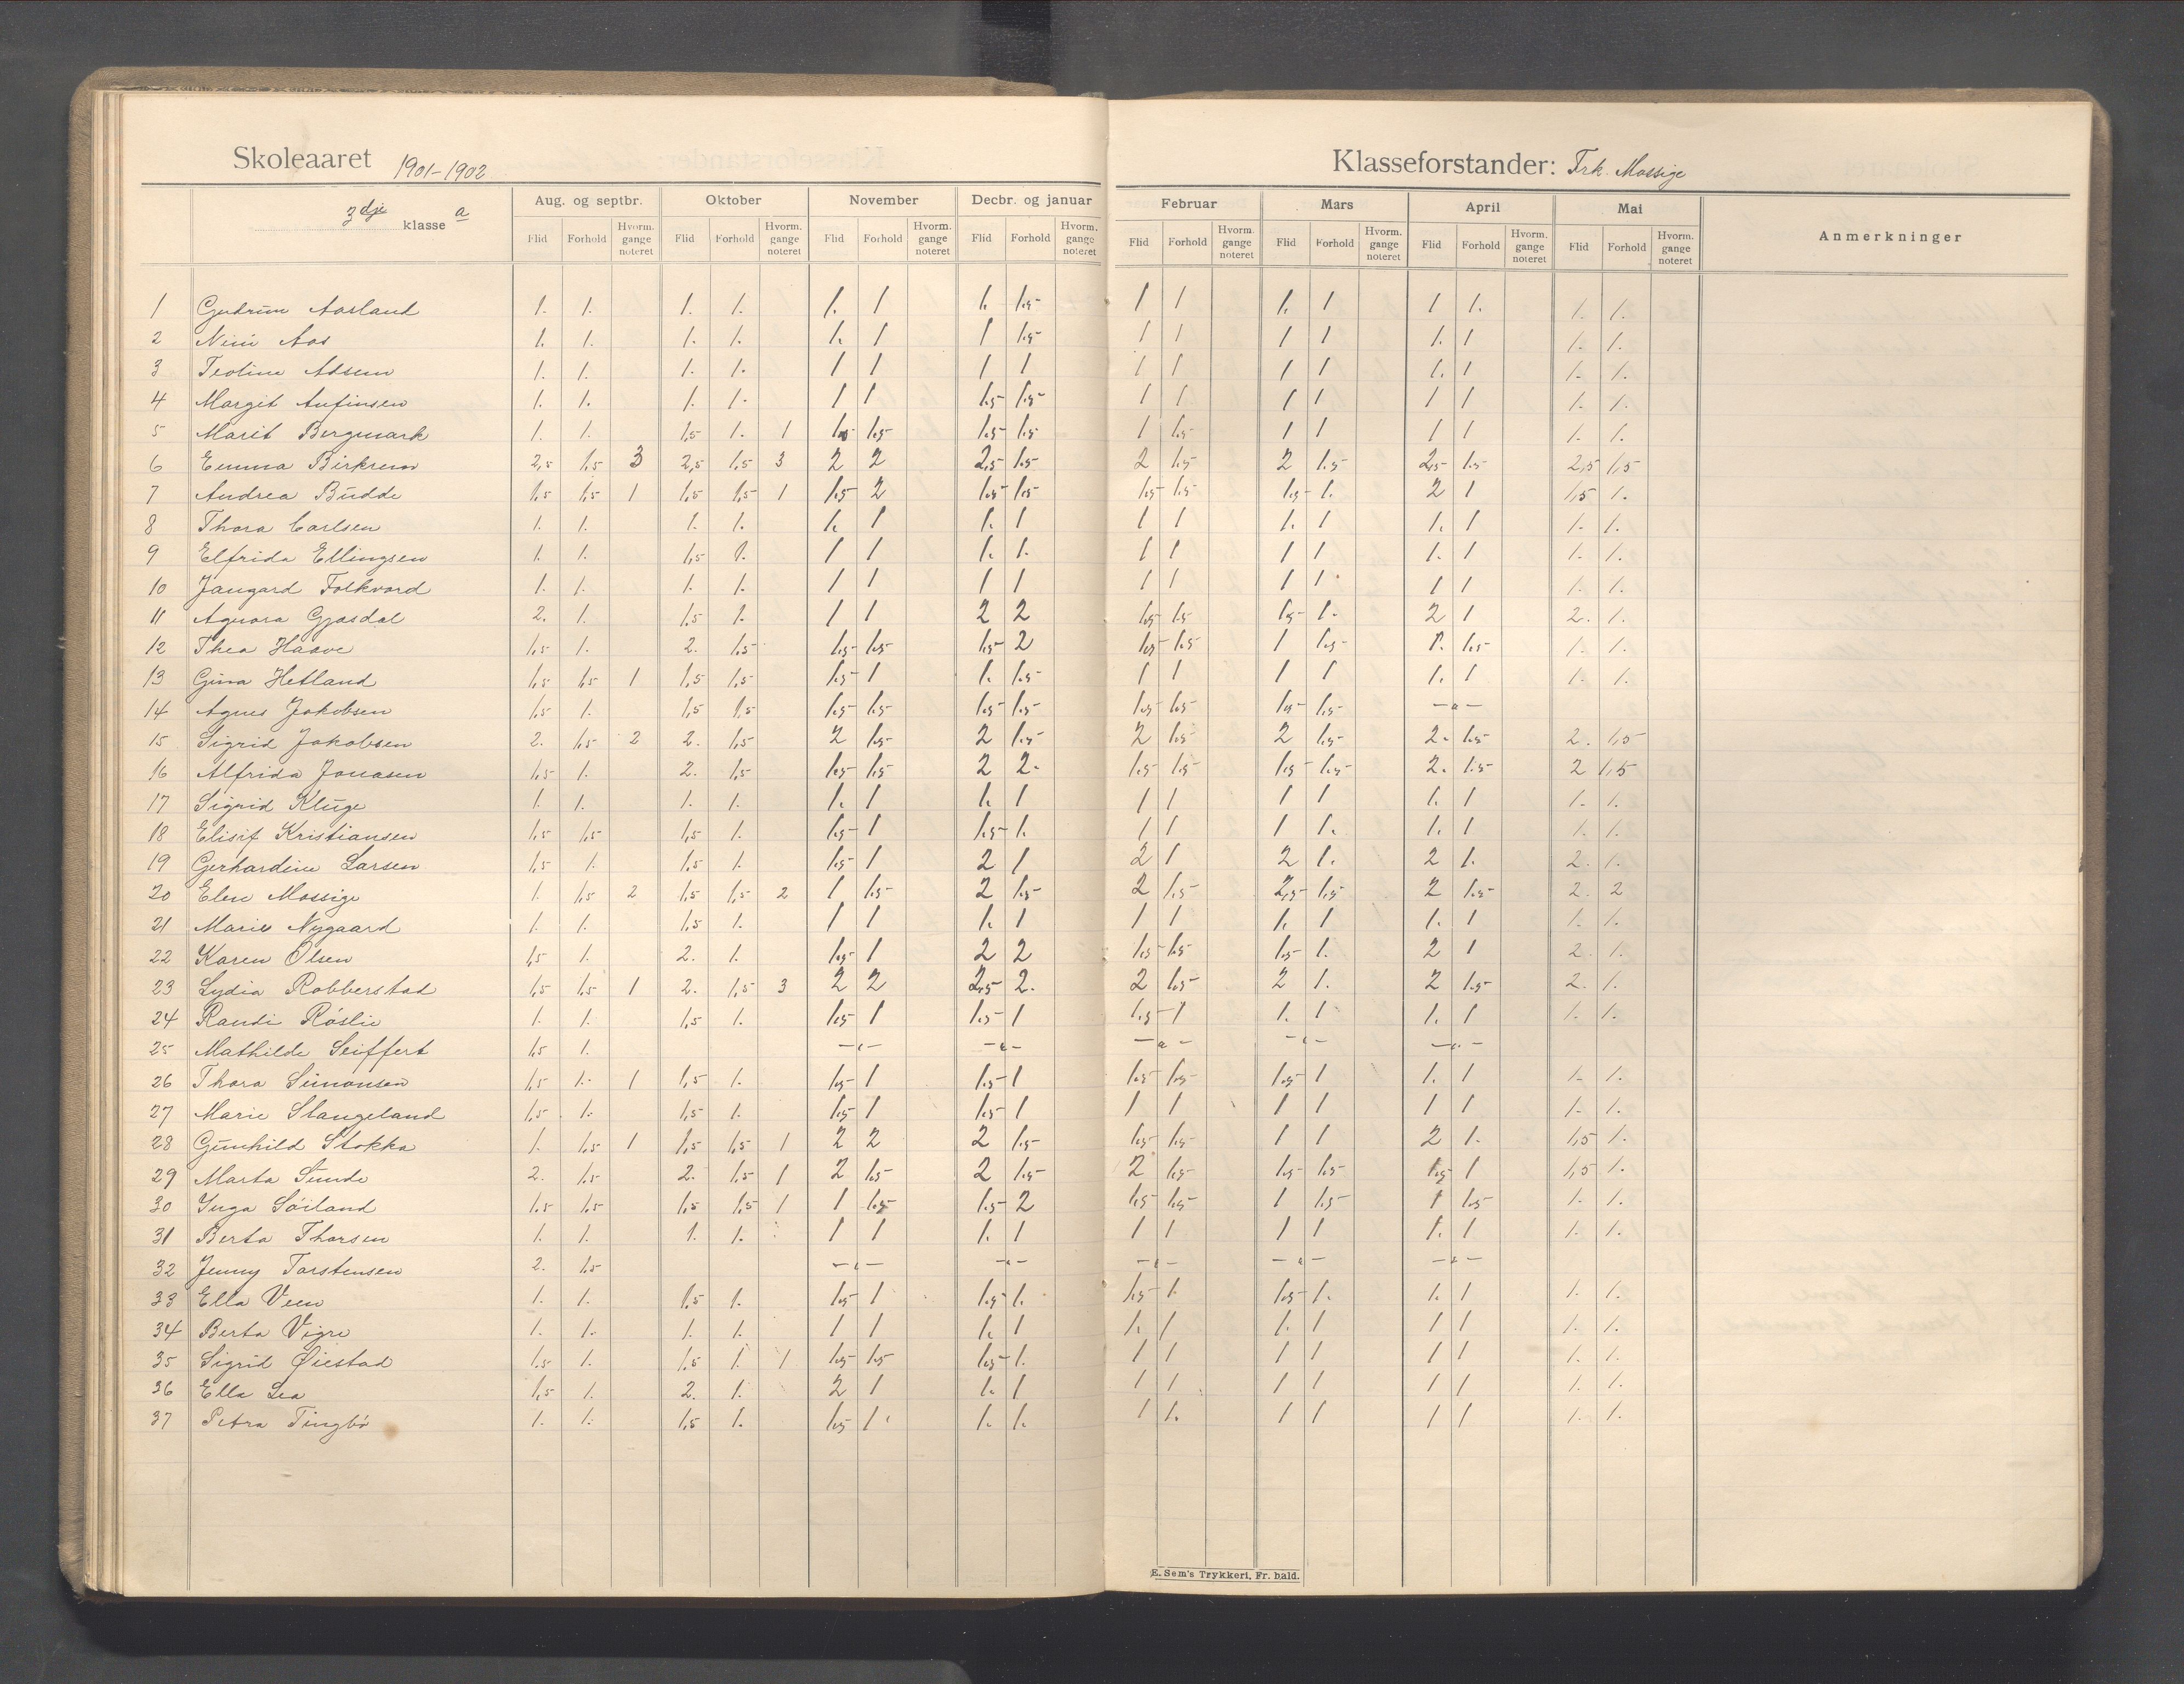 Skoleaaret 1901-1902
Klasseforstander: Frk. Mossige
3dje klasse a
Aug. og septbr. Oktober November Decbr. og januar Februar Mars April Mai Anmerkninger
Flid Forhold Hvorm. gange noteret Flid Forhold Hvorm. gange noteret Flid Forhold Hvorm. gange noteret Flid Forhold Hvorm. gange noteret Flid Forhold Hvorm. gange noteret Flid Forhold Hvorm. gange noteret Flid Forhold Hvorm. gange noteret Flid Forhold Hvorm. gange noteret
1 Gudrun Aasland 1. 1. 1. 1. 1. 1 1. 1.5 1 1 1. 1 1 1. 1. 1.
2 Nini Aas 1. 1. 1. 1. 1. 1 1 1.5 1 1 1 1 1. 1 1. 1.
3 Teoline Adsem 1. 1. 1. 1. 1 1 1 1 1 1 1 1 1. 1 1. 1.
4 Margit Anfinsen 1. 1. 1. 1. 1 1 1.5 1.5 1 1 1 1 1 1 1. 1.
5 Marit Bergmark 1. 1. 1,5 1. 1 1.5 1.5 1.5 1.5 1 1.5 1 1 1 1 1. 1.
6 Emma Birkrem 2,5 1,5 3 2,5 1,5 3 2 2 2,5 1.5 2 1.5 2 1.5 2,5 1.5 2,5 1,5
7 Andrea Budde 1,5 1,5 1 1,5 1,5 1 1.5 2 1.5 1.5 1.5 1.5 1.5 1. 2 1 1,5 1.
8 Thora Carlsen 1. 1. 1. 1. 1. 1 1. 1 1 1 1. 1 1. 1 1. 1.
9 Elfrida Ellingsen 1. 1. 1,5 1. 1 1 1. 1. 1 1 1 1 1. 1 1. 1.
10 Jangard Folkvord 1. 1. 1. 1. 1 1 1 1 1 1 1 1 1 1 1. 1.
11 Agnora Gjasdal 2. 1. 1,5 1. 1 1 2 2 1.5 1.5 1.5 1. 2 1 2. 1.
12 Thea Haave 1,5 1. 2. 1,5 1.5 1.5 1.5 2 1.5 1.5 1 1.5 1. 1.5 1. 1.
13 Gina Hetland 1,5 1,5 1 1,5 1,5 1.5 1 1. 1.5 1 1 1 1 1. 1 1. 1.
14 Agnes Jakobsen 1,5 1. 1,5 1,5 1.5 1.5 1.5 1.5 1.5 1.5 1.5 1.5 -"-
15 Sigrid Jakobsen 2. 1,5 2 2. 1,5 2 1.5 2 1.5 2 1.5 2 1.5 2. 1.5 2. 1,5
16 Alfrida Jonasen 1,5 1. 2. 1,5 1.5 1.5 2 2. 1.5 1.5 1.5 1.5 2. 1.5 2 1,5
17 Sigrid Kluge 1. 1. 1. 1. 1. 1 1. 1 1 1 1 1 1. 1 1. 1.
18 Elisif Kristiansen 1,5 1,5 1,5 1. 1.5 1 1.5 1. 1 1 1 1. 1. 1 1. 1.
19 Gerhardine Larsen 1,5 1. 1,5 1. 1.5 1 2 1 2 1 2 1. 2 1. 2. 1.
20 Elen Mossige 1. 1,5 2 1,5 1,5 2 1 1.5 2 1.5 2 1.5 2,5 1.5 2 1.5 2. 2
21 Marie Nygaard 1. 1. 1,5 1. 1 1 1. 1 1 1 1. 1 1. 1 1. 1.
22 Karen Olsen 1,5 1. 2. 1. 1.5 1 2 2 1.5 1.5 1.5 1. 2 1 2. 1.
23 Lydia Robberstad 1,5 1,5 1 2. 1,5 3 2 2 2,5 2. 2 1.5 2 1. 2 1.5 2. 1.
24 Randi Röslie 1. 1. 1,5 1. 1.5 1 1.5 1 1.5 1 1. 1 1. 1 1. 1.
25 Mathilde Seiffert 1,5 1. -"- -"- -"- -"- -"-
26 Thora Simonsen 1,5 1. 1 1,5 1. 1.5 1 1.5 1 1.5 1.5 1.5 1 1. 1 1. 1.
27 Marie Slangeland 1,5 1. 1,5 1. 1.5 1 1.5 1 1 1 1 1 1 1 1. 1.
28 Gunhild Stokka 1. 1,5 1 1,5 1,5 1 2 2 2 1.5 1.5 1.5 1 1 2 1. 1,5 1.
29 Marta Sunde 2. 1,5 2. 1,5 1 2 1.5 2 1.5 2 1.5 1.5 1.5 1.5 1 1,5 1.
30 Inga Söiland 1,5 1,5 1,5 1,5 1 1 1.5 1.5 2 1.5 1.5 1 1.5 1 1.5 1. 1.
31 Berta Thorsen 1. 1. 1. 1. 1 1 1. 1 1 1 1 1 1. 1 1. 1.
32 Jenny Torstensen 2. 1,5 -"- -"- -"- -"- -"-
33 Ella Veen 1. 1. 1,5 1. 1.5 1 1.5 1. 1.5 1. 1.5 1. 1. 1 1. 1.
34 Berta Vigre 1. 1. 1. 1. 1 1 1. 1 1. 1 1. 1 1 1 1. 1.
35 Sigrid Øiestad 1,5 1. 1,5 1. 1 1.5 1.5 1.5 1. 1 1 1 1 1 1 1. 1.
36 Ella Lea 1,5 1. 2. 1. 2 1 1. 1 1 1 1 1 1 1 1. 1.
37 Petra Tingbö 1. 1. 1,5 1. 1.5 1. 1. 1. 1 1. 1 1 1 1 1. 1.
E. Sem's Trykkeri, Fr.hald.